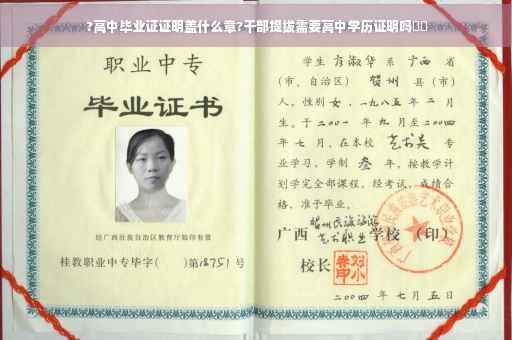 ?高中毕业证证明盖什么章?干部提拔需要高中学历证明吗
职业中专
毕业证书
经广西壮族自治区教育厅验印有效
桂教职业中专毕字( )第 号
学生 淑华 系 广西 省
(市、自治区) 贺州 县(市)
人,性别 女,一九八五年 二 月
生。于二○○一 年 九 月至二○○四
年 七 月,在本校 专
业学习,学制 叁 年,按教学计
划学完全部课程,经考试,成绩合
格,准予毕业。
广西 学校(印)
校长
二○○四 年 七 月 五 日